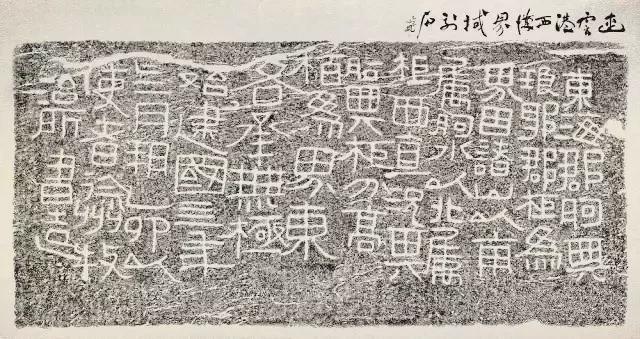 連雲港西漢界域刻石
東海郡朐與
琅邪郡柜為
界因諸山以南
屬朐水以北屬
柜西直況其
朐與柜分高
桓為界東
各承無極
始建國四年
四月朔乙卯以
使者徐州牧
治所書造